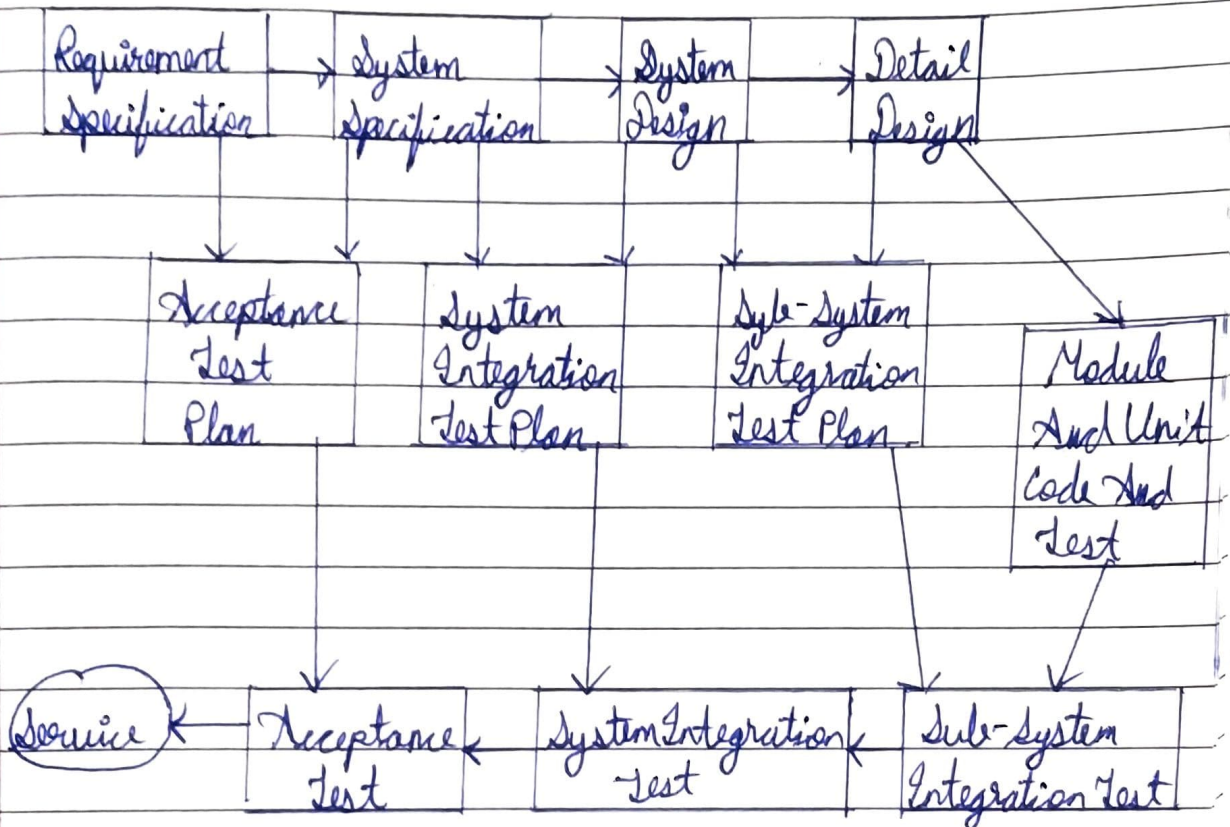 Requirement
Specification
System
Specification
System
Design
Detail
Design
Acceptance
Test
Plan
System
Integration
Test Plan
Syb-System
Integration
Test Plan
Module
And Unit
Code And
Test
Service
Acceptance
Test
System Integration
Test
Sub-System
Integration Test